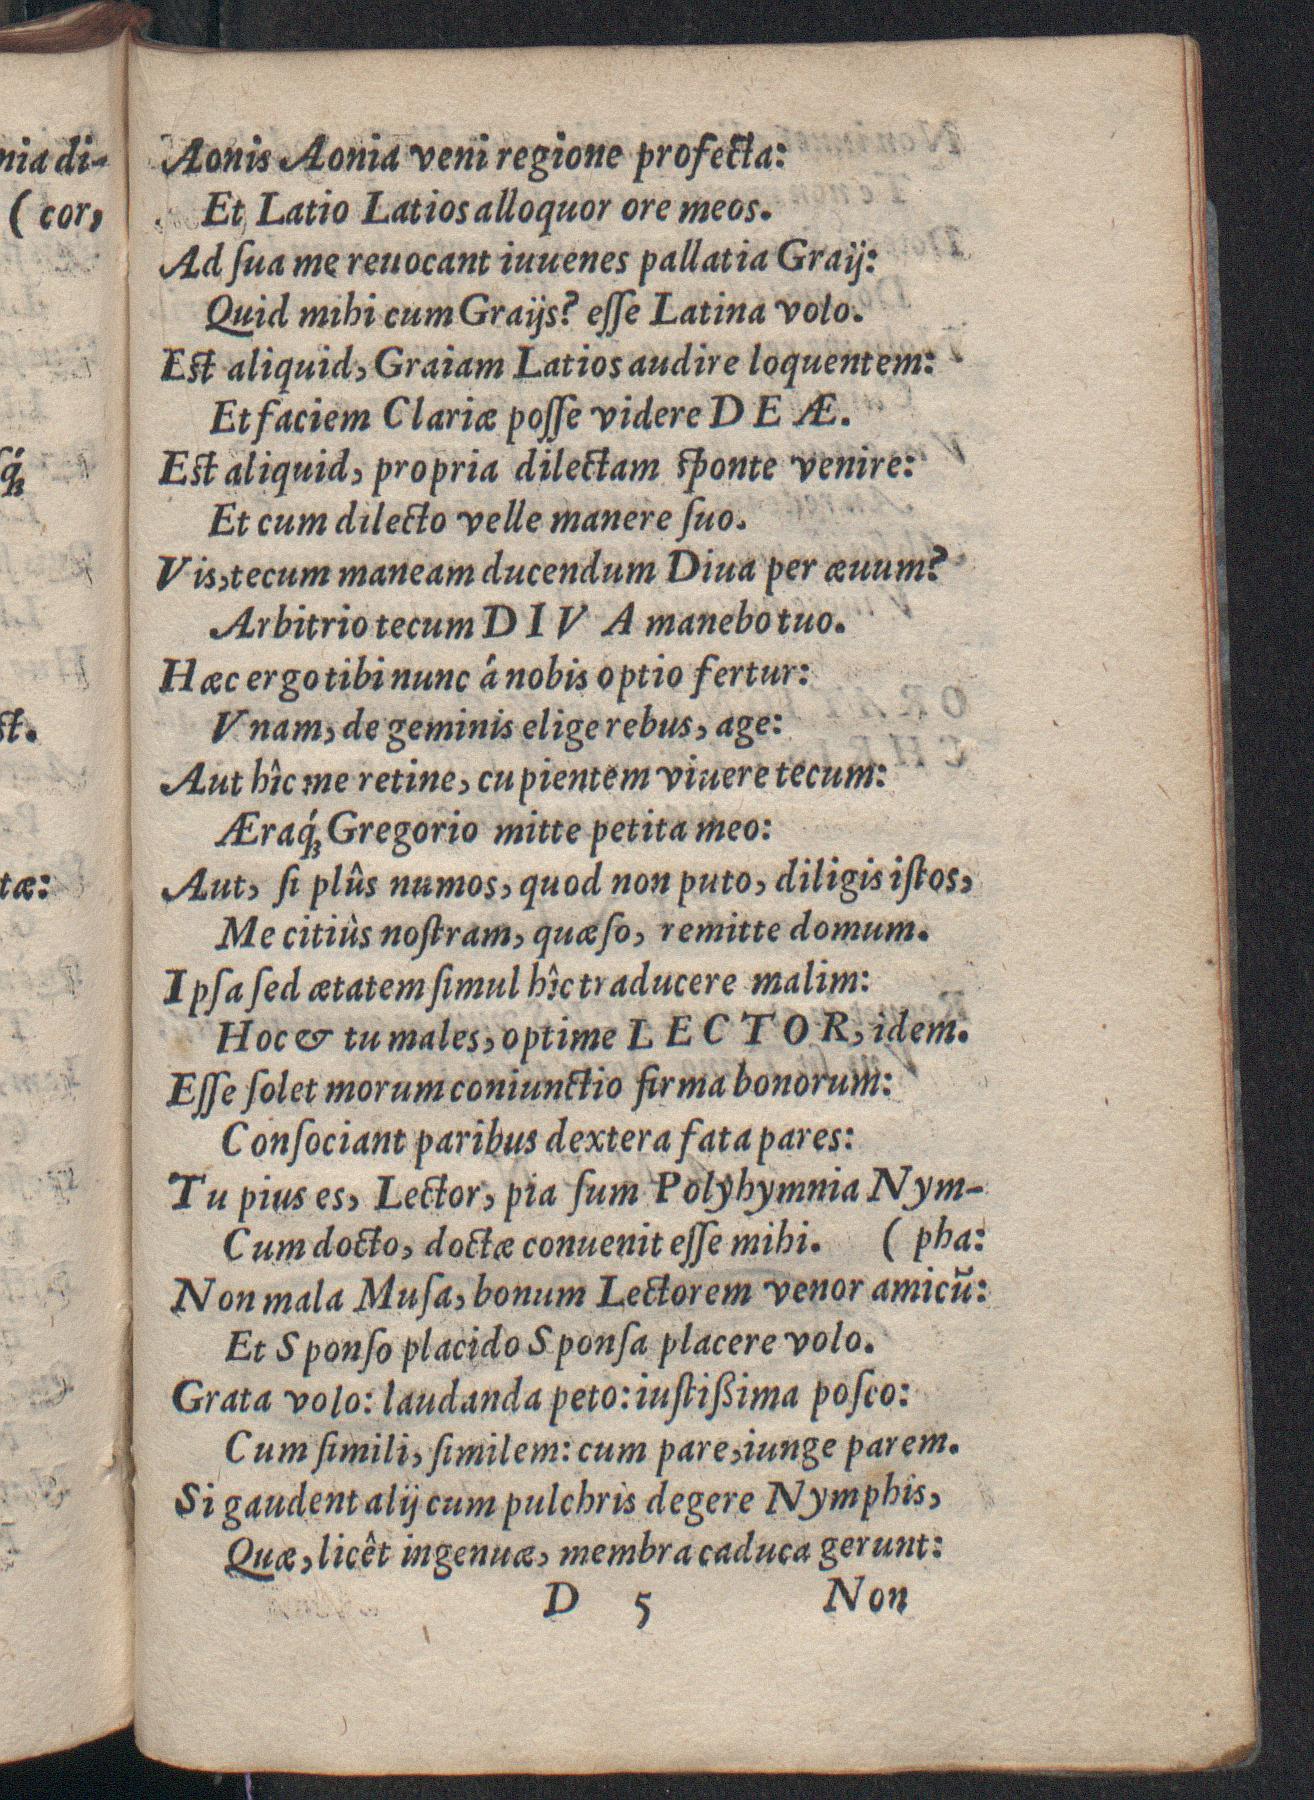 nia di-
( cor,
st.
tæ:
Aonis Aonia veni regione profecta:
Et Latio Latios alloquor ore meos.
Ad ſua me reuocant iuuenes pallatia Graij:
Quid mihi cum Graijs? eſſe Latina volo.
Est aliquid, Graiam Latios audire loquentem:
Et faciem Clariæ poſſe videre D E Æ.
Est aliquid, propria dilectam sponte venire:
Et cum dilecto velle manere ſuo.
Vis, tecum maneam ducendum Diua per æuum?
Arbitrio tecum D I V A manebo tuo.
Hæc ergo tibi nunc á nobis optio fertur:
Vnam, de geminis elige rebus, age:
Aut hîc me retine, cupientem viuere tecum:
Æraq́ꝫ Gregorio mitte petita meo:
Aut, ſi plûs numos, quod non puto, diligis iſtos,
Me citiùs noſtram, quæſo, remitte domum.
Ipſa ſed ætatem ſimul hîc traducere malim:
Hoc & tu males, optime L E C T O R, idem.
Eſſe ſolet morum coniunctio firma bonorum:
Conſociant paribus dextera fata pares:
Tu pius es, Lector, pia ſum Polyhymnia Nym-
Cum docto, doctæ conuenit eſſe mihi. ( pha:
Non mala Muſa, bonum Lectorem venor amicũ:
Et Sponſo placido Sponſa placere volo.
Grata volo: laudanda peto: iuſtißima poſco:
Cum ſimili, ſimilem: cum pare, iunge parem.
Si gaudent alij cum pulchris degere Nymphis,
Quæ, licêt ingenuæ, membra caduca gerunt:
D 5 Non